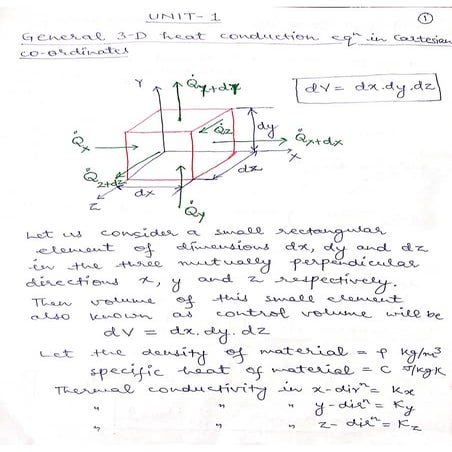 UNIT-1
①
General 3-D heat conduction eqⁿ in Cartesian
co-ordinates
dV = dx.dy.dz
Y
Q̇y+dy
Q̇z
dy
Q̇x
Q̇x+dx
X
Q̇z+dz
dz
dx
Z
Q̇y
Let us consider a small rectangular
element of dimensions dx, dy and dz
in the three mutually perpendicular
directions x, y and z respectively.
Then volume of this small element
also known as control volume will be
dV = dx.dy.dz
Let the density of material = ρ kg/m³
specific heat of material = C J/kgK
Thermal conductivity in x-dirⁿ = Kx
" " " y-dirⁿ = Ky
" " " z-dirⁿ = Kz